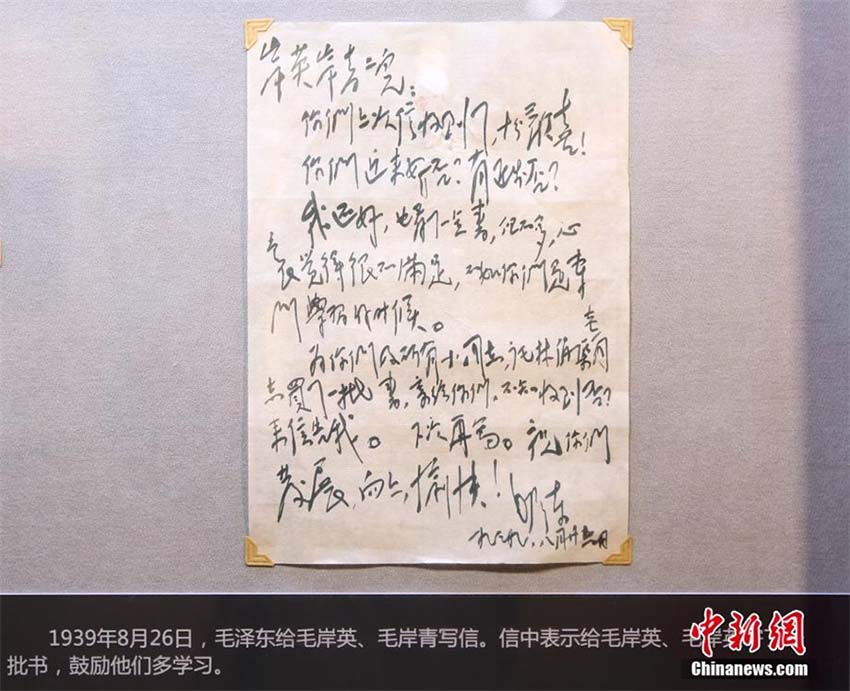 岸英岸青二兒：
你們上次信收到了，十分歡喜！
你們近来好否？有進步否？
我還好，也看了一点書，但不多，心
裏觉得很不滿足，不如你們是專
門學習的时候。
为你們及所有小同志，托林伯渠老同
志買了一批書，寄给你們，不知收到否？
来信告我。下次再写。祝你們
發展，向上，愉快！
毛澤东
一九三九，八月廿六日
1939年8月26日，毛泽东给毛岸英、毛岸青写信。信中表示给毛岸英、毛岸
批书，鼓励他们多学习。
中新网
Chinanews.com